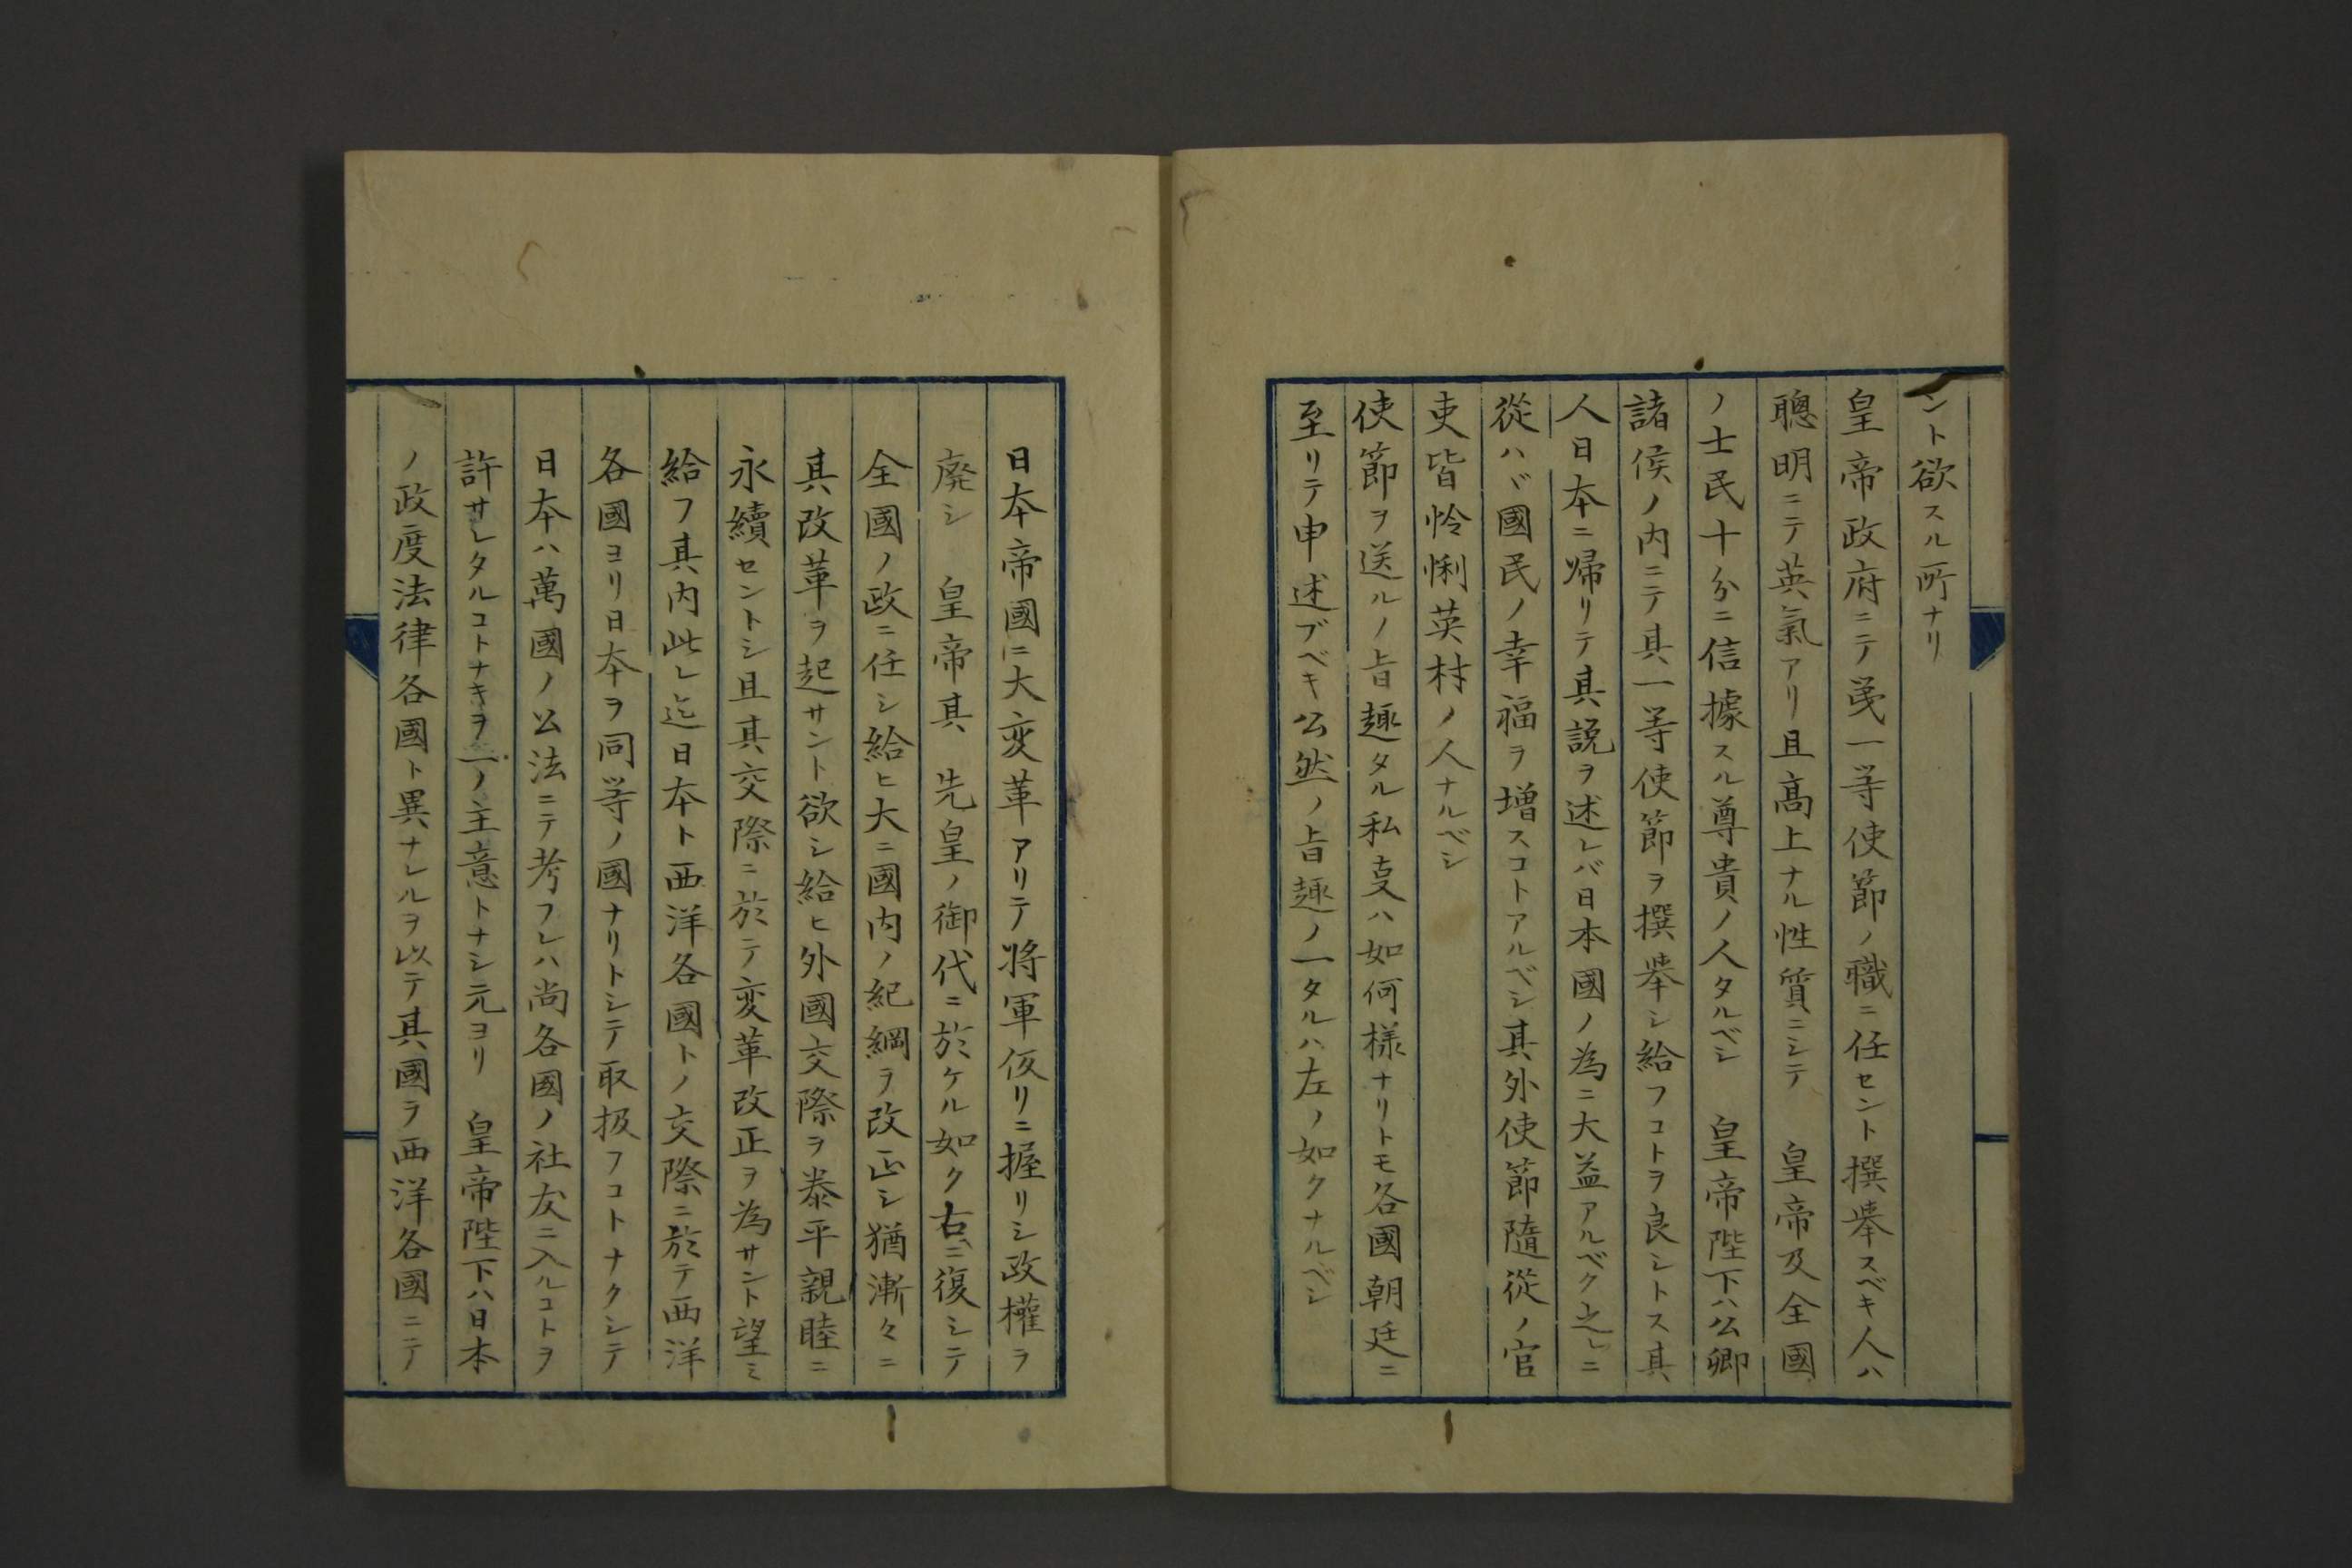 ント欲スル所ナリ
皇帝政府ニテ第一等使節ノ職ニ任セント撰挙スベキ人ハ
聰明ニテ英氣アリ且高上ナル性質ニシテ　皇帝及全國
ノ士民十分ニ信據スル尊貴ノ人タルベシ　皇帝陛下ハ公卿
諸侯ノ内ニテ其一等使節ヲ撰挙シ給フコトヲ良シトス其
人日本ニ帰リテ其説ヲ述レバ日本國ノ為ニ大益アルベク之レニ
従ハヾ國民ノ幸福ヲ増スコトアルベシ其外使節隨従ノ官
吏皆怜悧英材ノ人ナルベシ
使節ヲ送ルノ旨趣タル私事ハ如何様ナリトモ各國朝廷ニ
至リテ申述ブベキ公然ノ旨趣ノ一タルハ左ノ如クナルベシ
日本帝國ニ大変革アリテ将軍仮リニ握リシ政權ヲ
廃シ　皇帝其　先皇ノ御代ニ於ケル如ク右ニ復シテ
全國ノ政ニ任シ給ヒ大ニ國内ノ紀綱ヲ改正シ猶漸々ニ
其改革ヲ起サント欲シ給ヒ外國交際ヲ泰平親睦ニ
永續セントシ且其交際ニ於テ変革改正ヲ為サント望ミ
給フ其内此レ迄日本ト西洋各國トノ交際ニ於テ西洋
各國ヨリ日本ヲ同等ノ國ナリトシテ取扱フコトナクシテ
日本ハ萬國ノ公法ニテ考フレハ尚各國ノ社友ニ入ルコトヲ
許サレタルコトナキヲ一ノ主意トナシ元ヨリ　皇帝陛下ハ日本
ノ政度法律各國ト異ナレルヲ以テ其國ヲ西洋各國ニテ